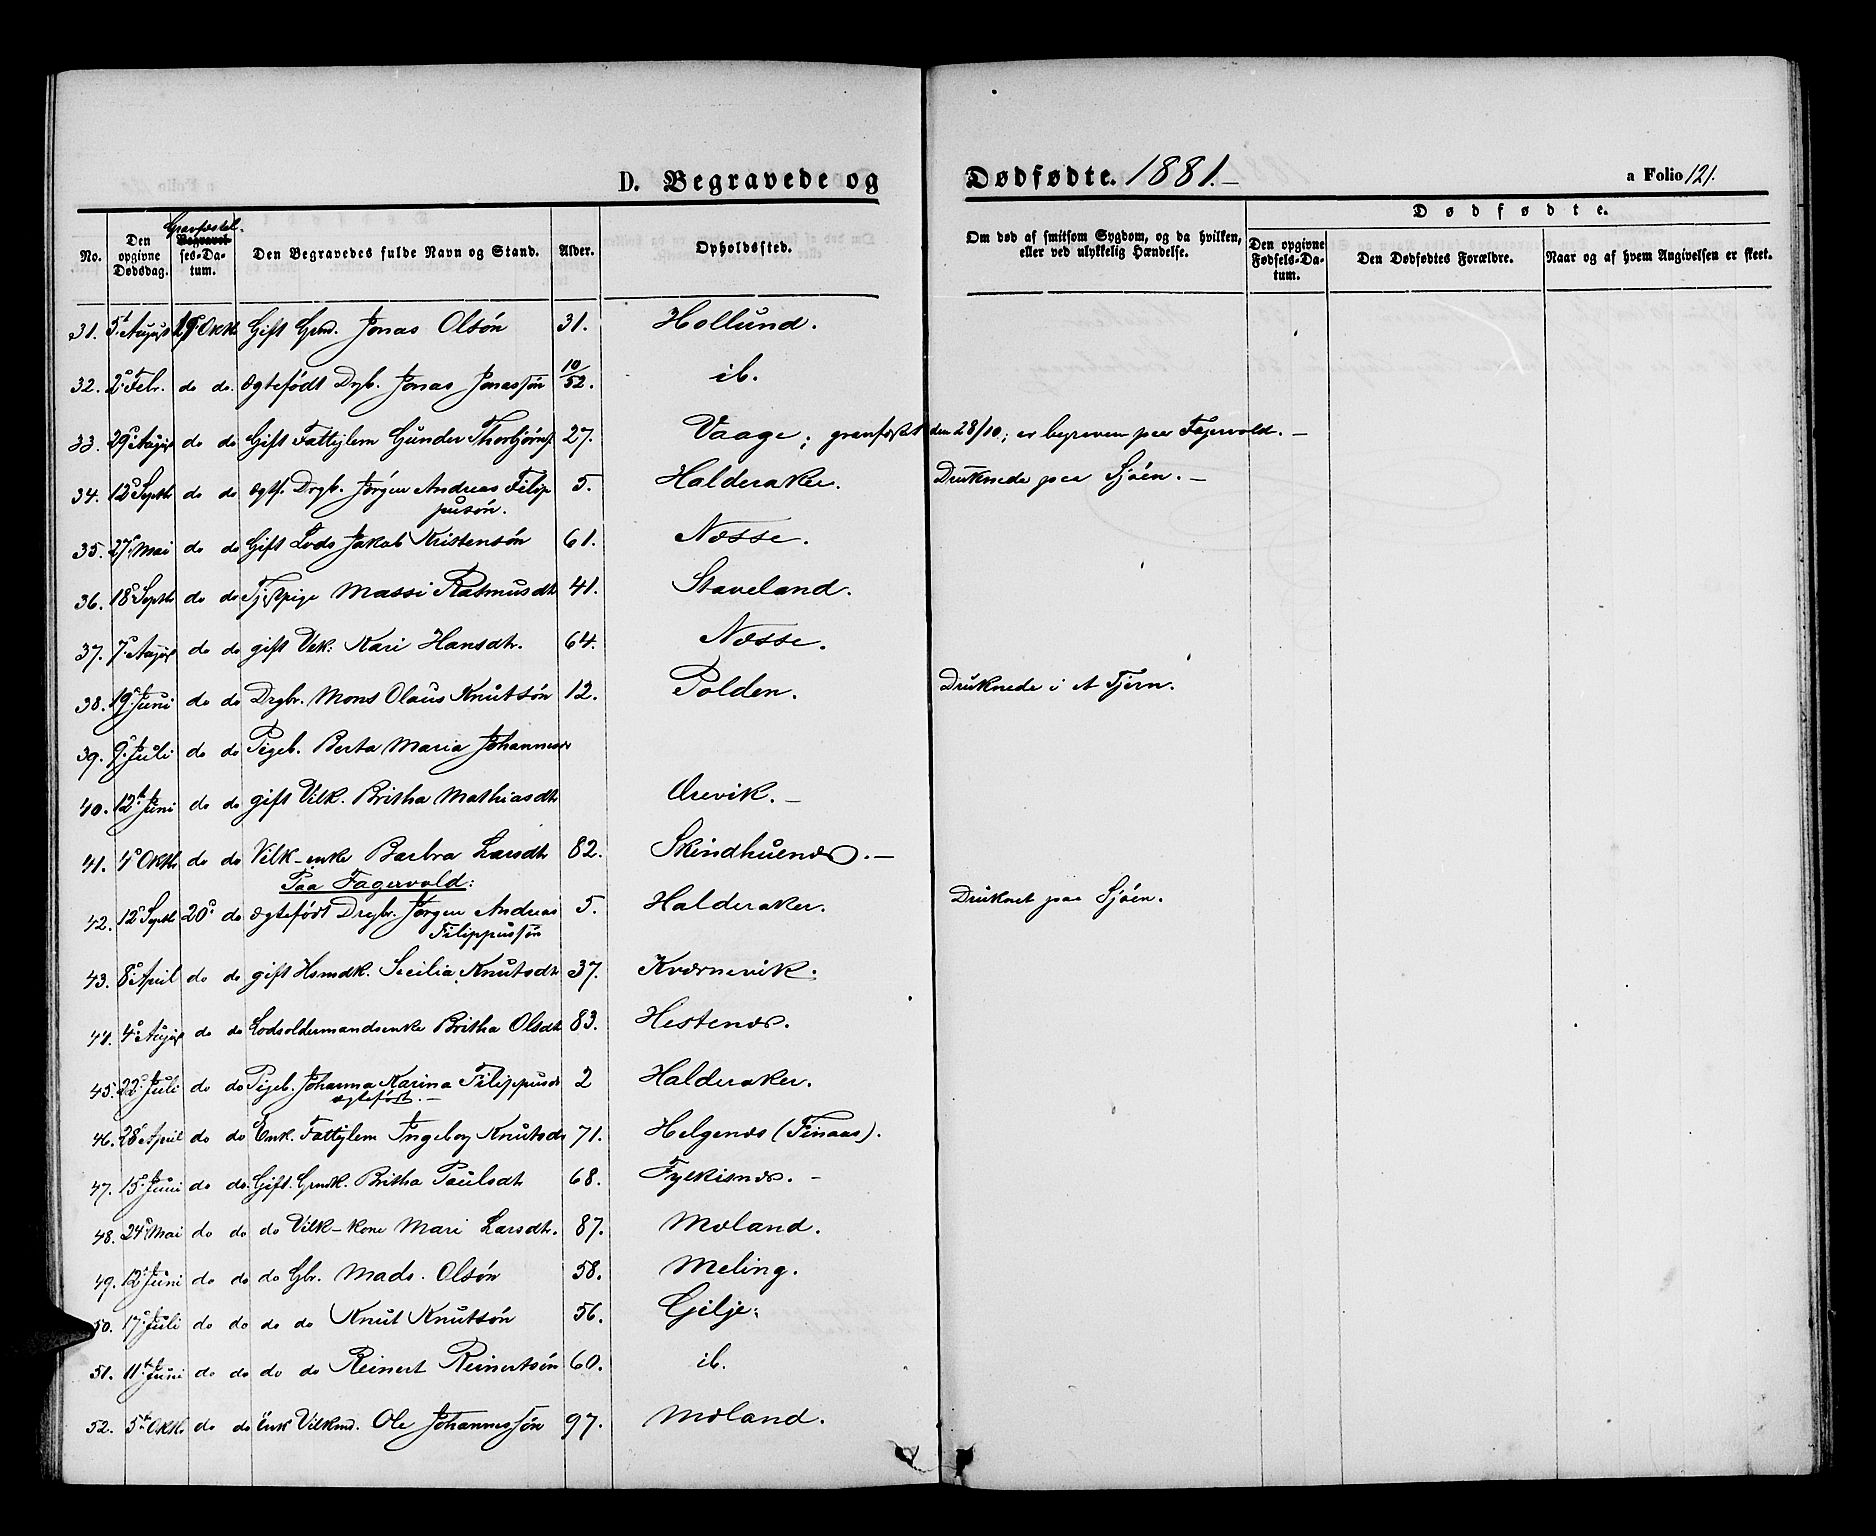 D. Begravede og Dødfødte. 1881.–
a Folio 121.
No. Den opgivne Dødsdag. Gravfæstel- Begravelses-Datum. Den Begravedes fulde Navn og Stand. Alder. Opholdssted. Om død af smitsom Sygdom, og da hvilken, eller ved ulykkelig Hændelse.
Dødfødte.
Den opgivne Fødsels-Datum. Den Dødfødtes Forældre. Naar og af hvem Angivelsen er skeet.
31. 5t August 19 Oktb Gift Grmd. Jonas Olsön 31. Hollund.
32. 2. Febr. do do. ægtefödt Drgb. Jonas Jonassön 10/52. ib.
33. 29 August do do Gift Fattiglem Gunder Thorbjörns. 27. Vaage; gravfæstet den 28/10; er begraven paa Fagervold. –
34. 12 Septb do do ægtf. Drgb. Jörgen Andreas Filip 5. Halderaker. Druknede paa Sjöen. –
pusön.
35. 27 Mai do do Gift Lods Jakob Kristensön 61. Næsse.
36. 18 Septb do do Tj. Pige Massi Rasmusdt 41. Staveland.
37. 7 August do do gift Vilk. Kari Hansdt. 64. Næsse.
38. 19 Juni do do Drgbr. Mons Olaus Knutsön 12. Polden. Druknede i et Tjern.
39. 9 Juli do do Pigeb. Berta Maria Johannesd
40. 12t Juni do do gift Vilk. Britha Mathiasdt Øsevik. –
41. 4 Oktb do do Vilk-enke Barbra Larsdt 82. Skindhuenæs. –
Paa Fagervold:
42. 12 Septb 20 do ægtefödt Drgbr. Jörgen Andreas 5. Halderaker. Druknet paa Sjöen.
Filippussön
43. 8 April do do gift Hsmdk. Secilia Knutsdt 37. Kværnevik.
44. 4 August do do Lodsoldermandsenke Britha Olsdt 83. Hestenæs.
45. 22 Juli do do Pigeb. Johanna Karina Filippusd 2 Halderaker.
ægtefödt. –
46. 28 April do do Enk. Fattiglem Ingebog Knutsdt 71. Helgenæs (Finaas).
47. 15 Juni do do. Gift. Grmdk. Britha Paulsdt 68. Fylkisnæs. –
48. 24 Mai do do do Vilk-kone Mari Larsdt. 87. Mæland.
49. 12 Juni do do do Gbr. Mads. Olsön 58. Meling.
50. 17 Juli do do do do Knut Knutsön 56. Gilje.
51. 11te Juni do do do do Reinert Reinertsön 60. ib.
52. 5te Oktb do do Enk Vilkmd. Ole Johannessön 97. Mæland.